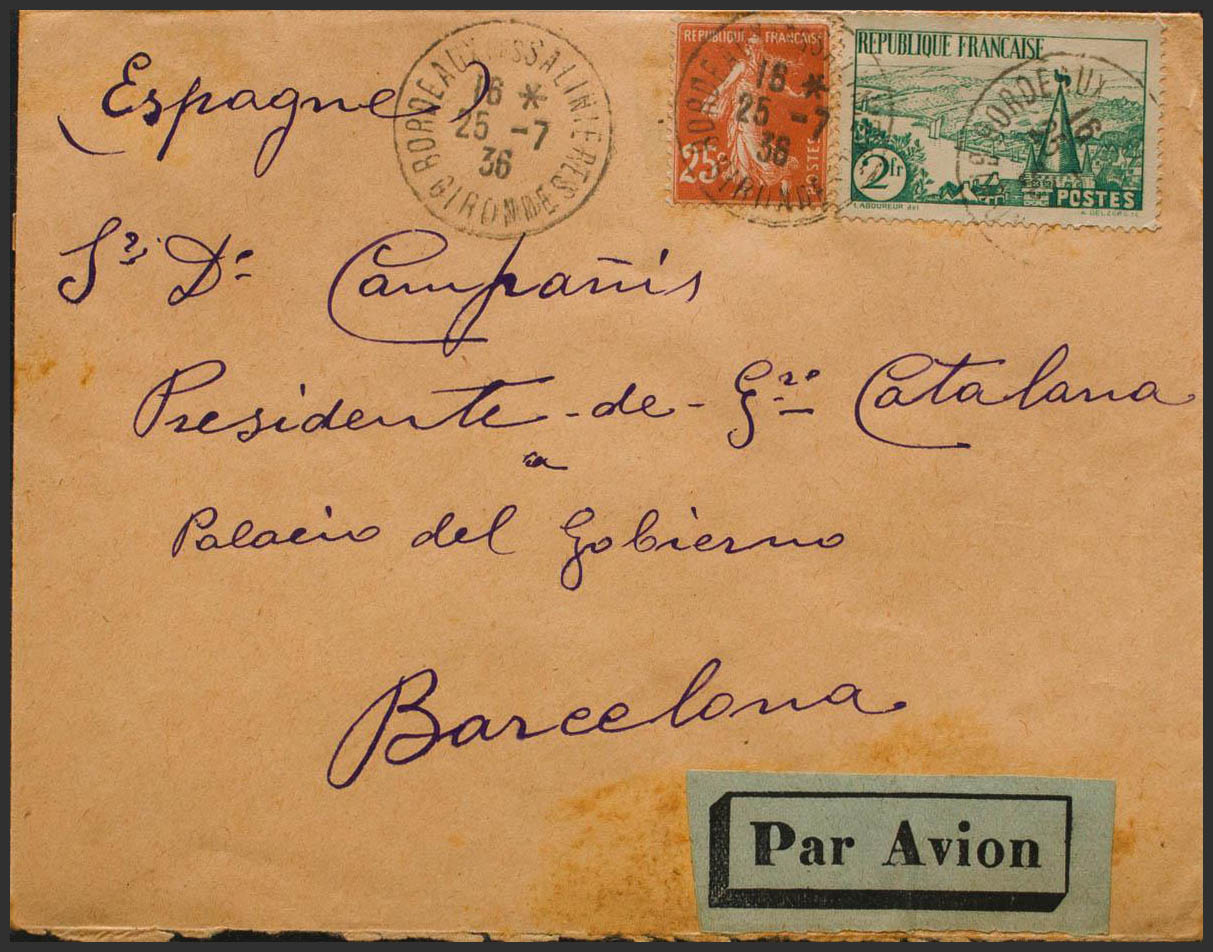 (Espagne)
BORDEAUX-SSALINIERES
16 *
25 -7
36
GIRONDE
REPUBLIQUE FRANÇAISE
25c
POSTES
BORDEAUX
16 *
25 -7
36
GIRONDE
REPUBLIQUE FRANÇAISE
2fr
POSTES
LABOUREUR del
A. DELZERS sc
BORDEAUX
16
25
Sr. Dn. Campañis
Presidente - de - Gro Catalana
a
Palacio del Gobierno
Barcelona
Par Avion